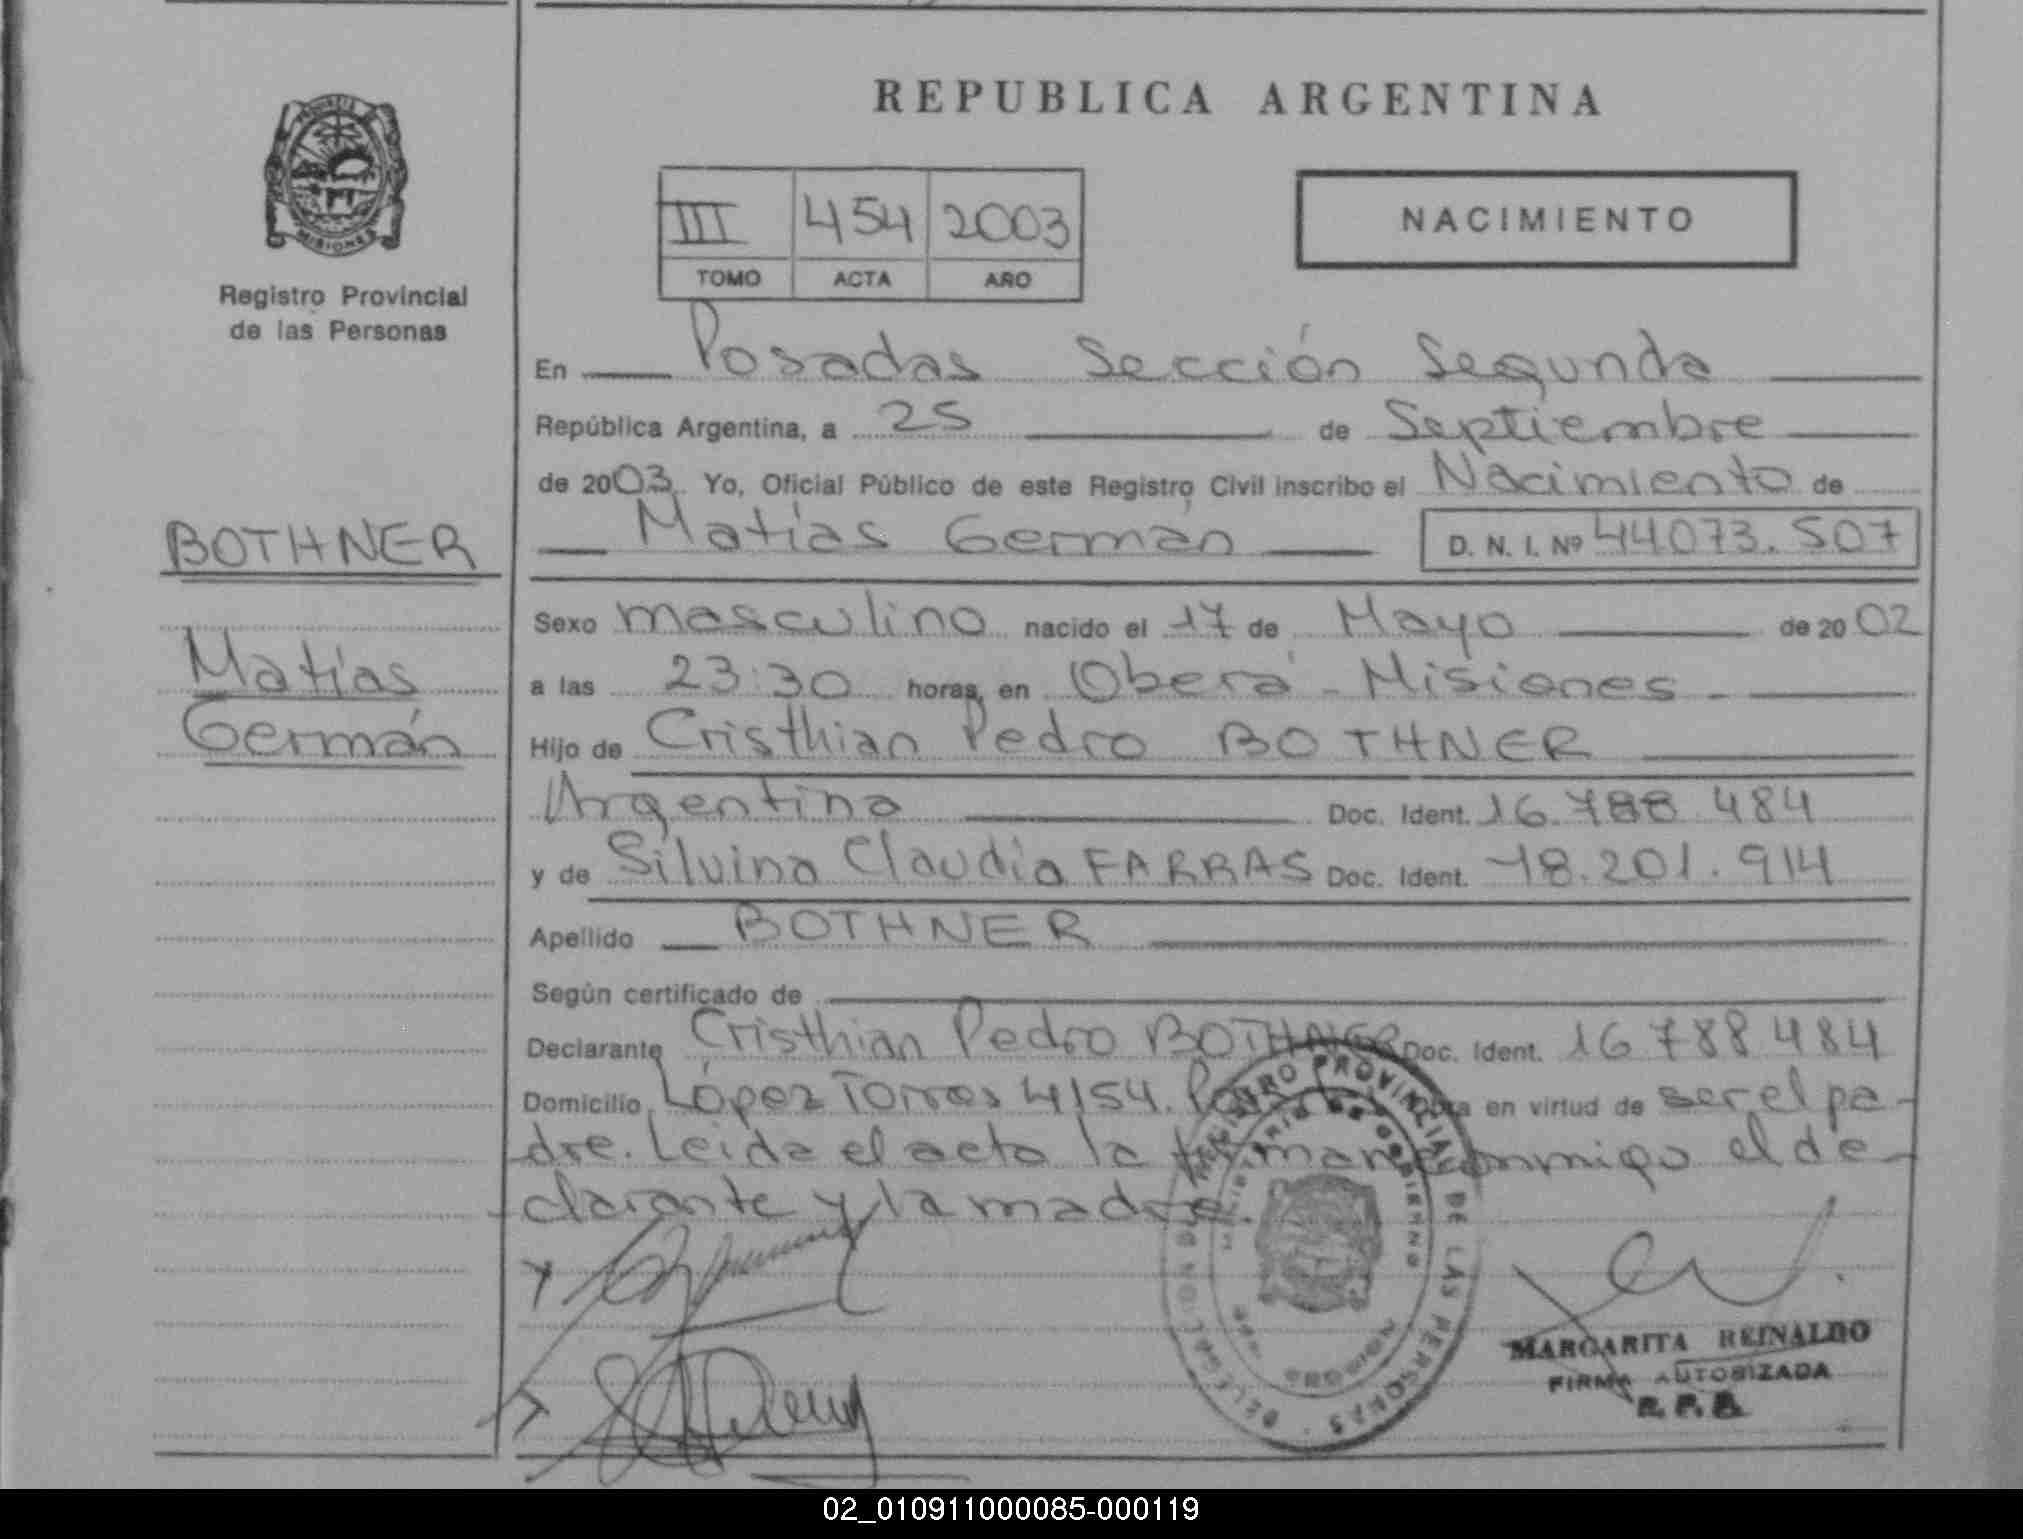 REPUBLICA ARGENTINA
PROVINCIA
MISIONES
Registro Provincial
de las Personas
III 454 2003
TOMO ACTA AÑO
NACIMIENTO
En Posadas Sección Segunda
República Argentina, a 25 de Septiembre
de 2003. Yo, Oficial Público de este Registro Civil inscribo el Nacimiento de
Matías Germán D. N. I. Nº 44073.507
BOTHNER
Matías
Germán
Sexo masculino nacido el 17 de Mayo de 20 02
a las 23:30 horas, en Oberá - Misiones -
Hijo de Cristhian Pedro BOTHNER
Argentina Doc. Ident. 16.788.484
y de Silvina Claudia FARRAS Doc. Ident. 18.201.914
Apellido BOTHNER
Según certificado de
Declarante Cristhian Pedro BOTHNER Doc. Ident. 16 788 484
Domicilio López Torres 4154. Obra en virtud de ser el pa-
dre. Leida el acta la firman conmigo el de-
clarante y la madre.
REGISTRO PROVINCIAL DE LAS PERSONAS
MINISTERIO DE GOBIERNO
MISIONES
MARGARITA REINALDO
FIRMA AUTORIZADA
R.P.P.
02_010911000085-000119